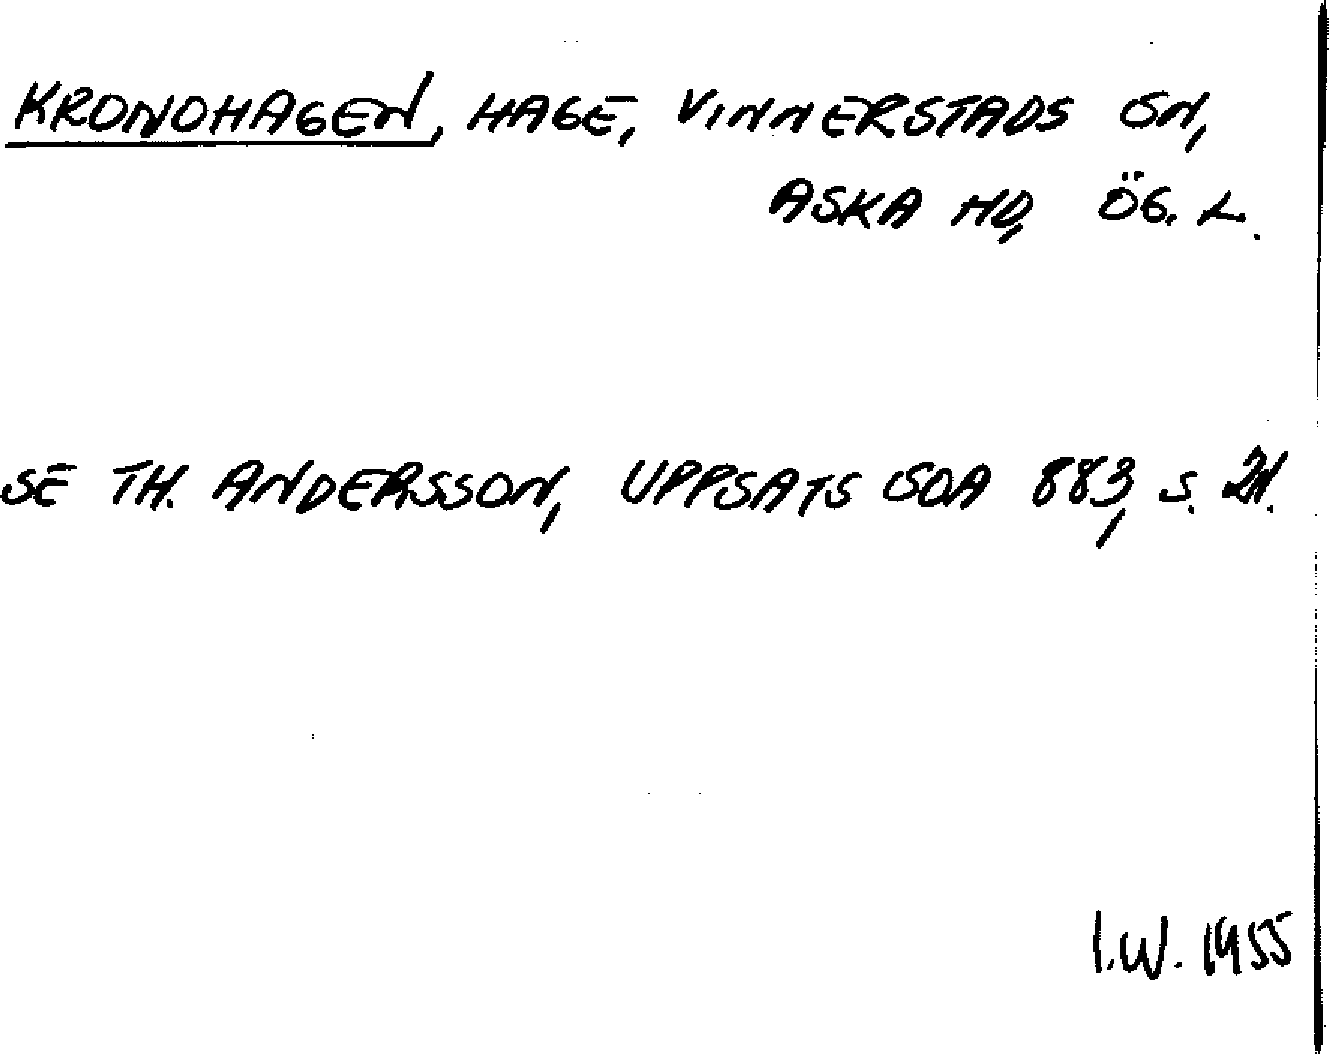 KRONOHAGEN, HAGE, VINNERSTADS SN,
ASKA HD, ÖG. L.
SE TH. ANDERSSON, UPPSATS SOA 883, S.
I.W. 1955